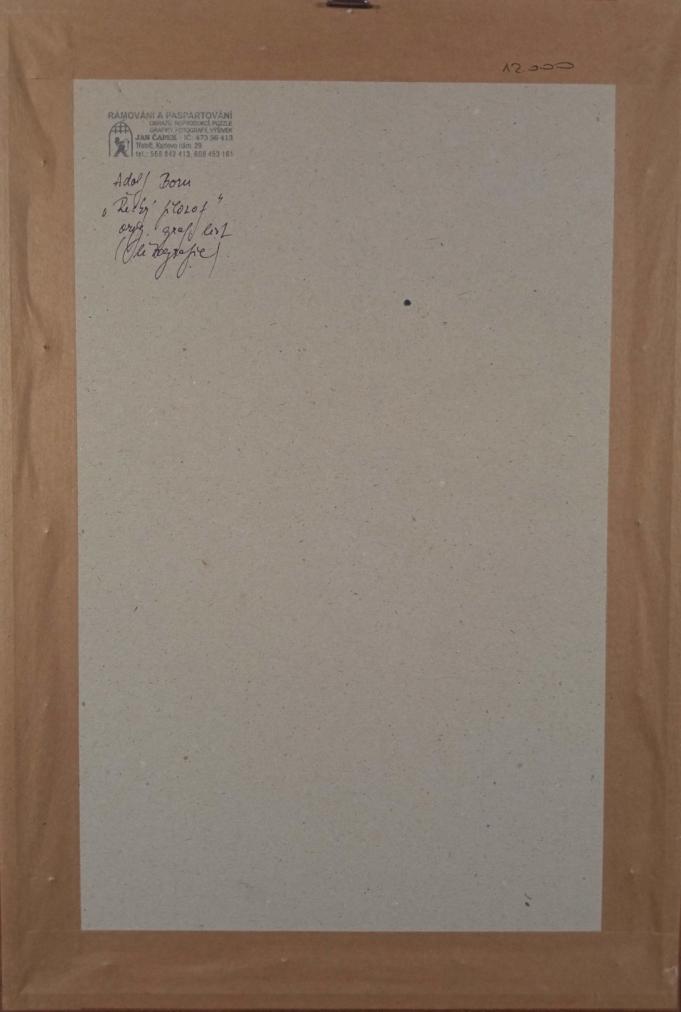 12.000
RÁMOVÁNÍ A PASPARTOVÁNÍ
OBRAZŮ, REPRODUKCÍ, PUZZLE
GRAFIKY, FOTOGRAFIÍ, VÝŠIVEK
JAN ČAPEK IČ: 473 56 413
Třebíč, Karlovo nám. 29
tel.: 568 842 413, 608 453 161
Adolf Born
„Řecký filozof"
orig. graf. list
(litografie)